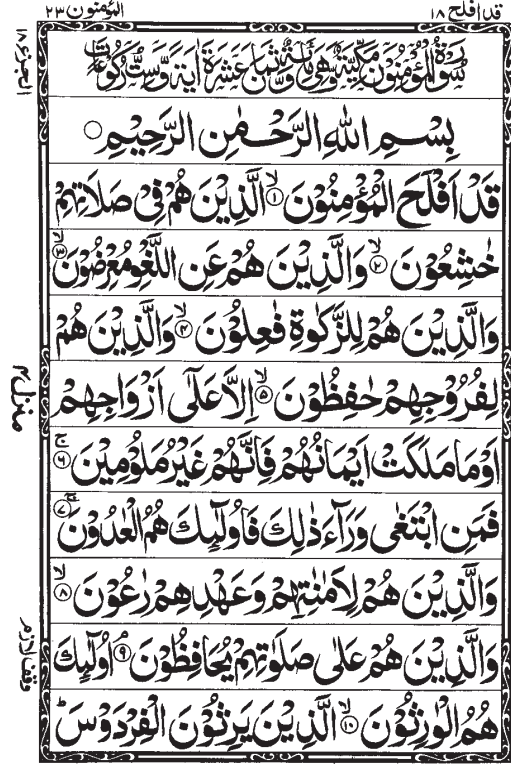 قد افلح ۱۸
المؤمنون ۲۳
الجزء ۱۸
سُوْرَةُ الْمُؤْمِنُوْنَ مَكِّيَّةٌ وَّهِيَ مِائَةٌ وَّثَمَانِيَ عَشَرَةَ اٰيَةً وَّسِتُّ رُكُوْعَاتٍ
بِسْمِ اللهِ الرَّحْمٰنِ الرَّحِيْمِ ○
قَدْ اَفْلَحَ الْمُؤْمِنُوْنَ ۙ﴿۱﴾ الَّذِيْنَ هُمْ فِيْ صَلَاتِهِمْ
خٰشِعُوْنَ ۙ﴿۲﴾ وَالَّذِيْنَ هُمْ عَنِ اللَّغْوِ مُعْرِضُوْنَ ۙ﴿۳﴾
وَالَّذِيْنَ هُمْ لِلزَّكٰوةِ فٰعِلُوْنَ ۙ﴿۴﴾ وَالَّذِيْنَ هُمْ
لِفُرُوْجِهِمْ حٰفِظُوْنَ ۙ﴿۵﴾ اِلَّا عَلٰٓى اَزْوَاجِهِمْ
اَوْ مَا مَلَكَتْ اَيْمَانُهُمْ فَاِنَّهُمْ غَيْرُ مَلُوْمِيْنَ ۚ﴿۶﴾
فَمَنِ ابْتَغٰى وَرَآءَ ذٰلِكَ فَاُولٰٓئِكَ هُمُ الْعٰدُوْنَ ۚ﴿۷﴾
وَالَّذِيْنَ هُمْ لِاَمٰنٰتِهِمْ وَعَهْدِهِمْ رٰعُوْنَ ۙ﴿۸﴾
وَالَّذِيْنَ هُمْ عَلٰى صَلَوٰتِهِمْ يُحَافِظُوْنَ ۘ﴿۹﴾ اُولٰٓئِكَ
هُمُ الْوٰرِثُوْنَ ۙ﴿۱۰﴾ الَّذِيْنَ يَرِثُوْنَ الْفِرْدَوْسَ ؕ
منزل ۴
وقف لازم